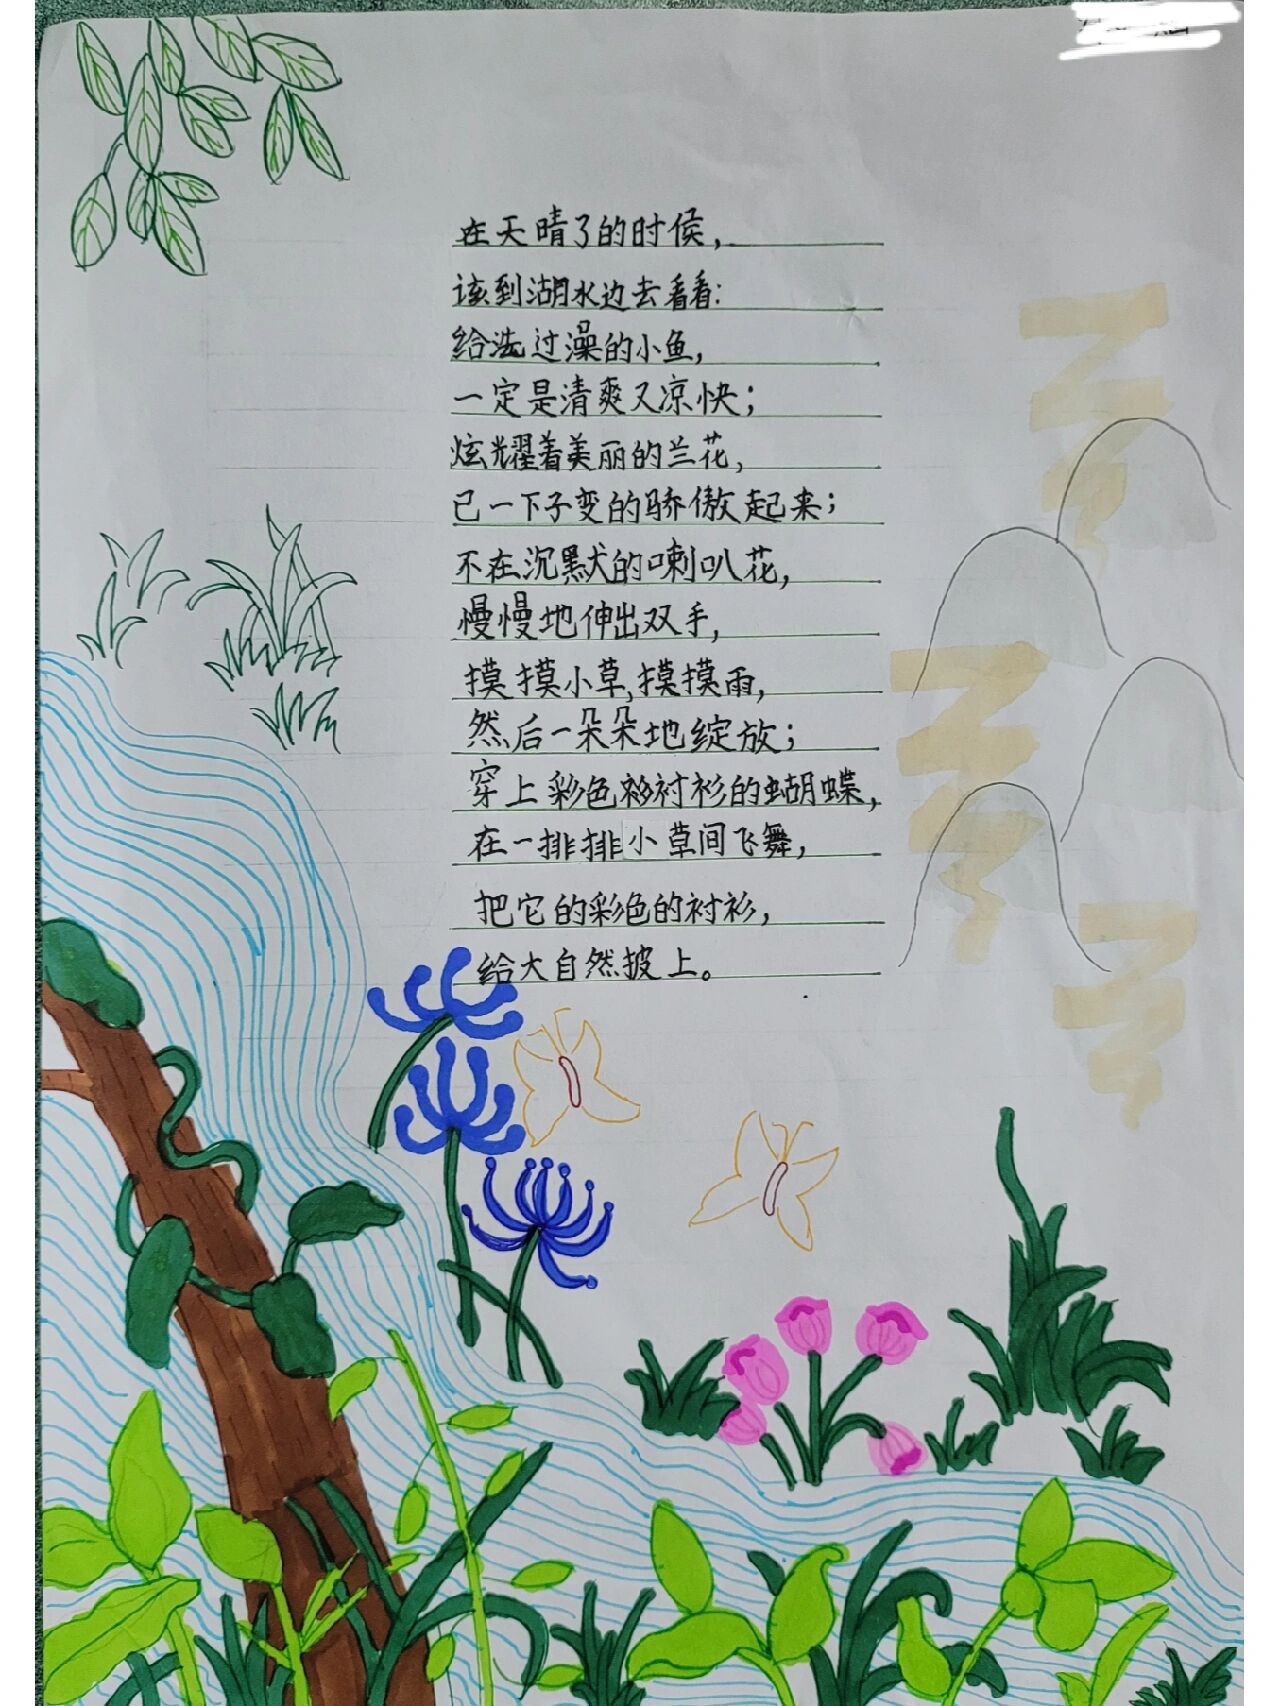 在天晴了的时候，
该到湖水边去看看：
给洗过澡的小鱼，
一定是清爽又凉快；
炫耀着美丽的兰花，
已一下子变的骄傲起来；
不在沉默的喇叭花，
慢慢地伸出双手，
摸摸小草，摸摸雨，
然后一朵朵地绽放；
穿上彩色衬衫的蝴蝶，
在一排排小草间飞舞，
把它的彩色的衬衫，
给大自然披上。